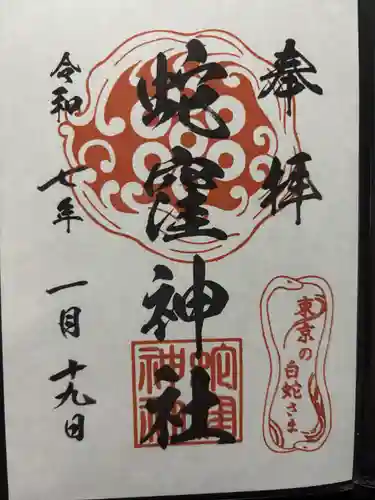 奉拝
東京の
白蛇さま
蛇窪神社
令和七年
一月十九日